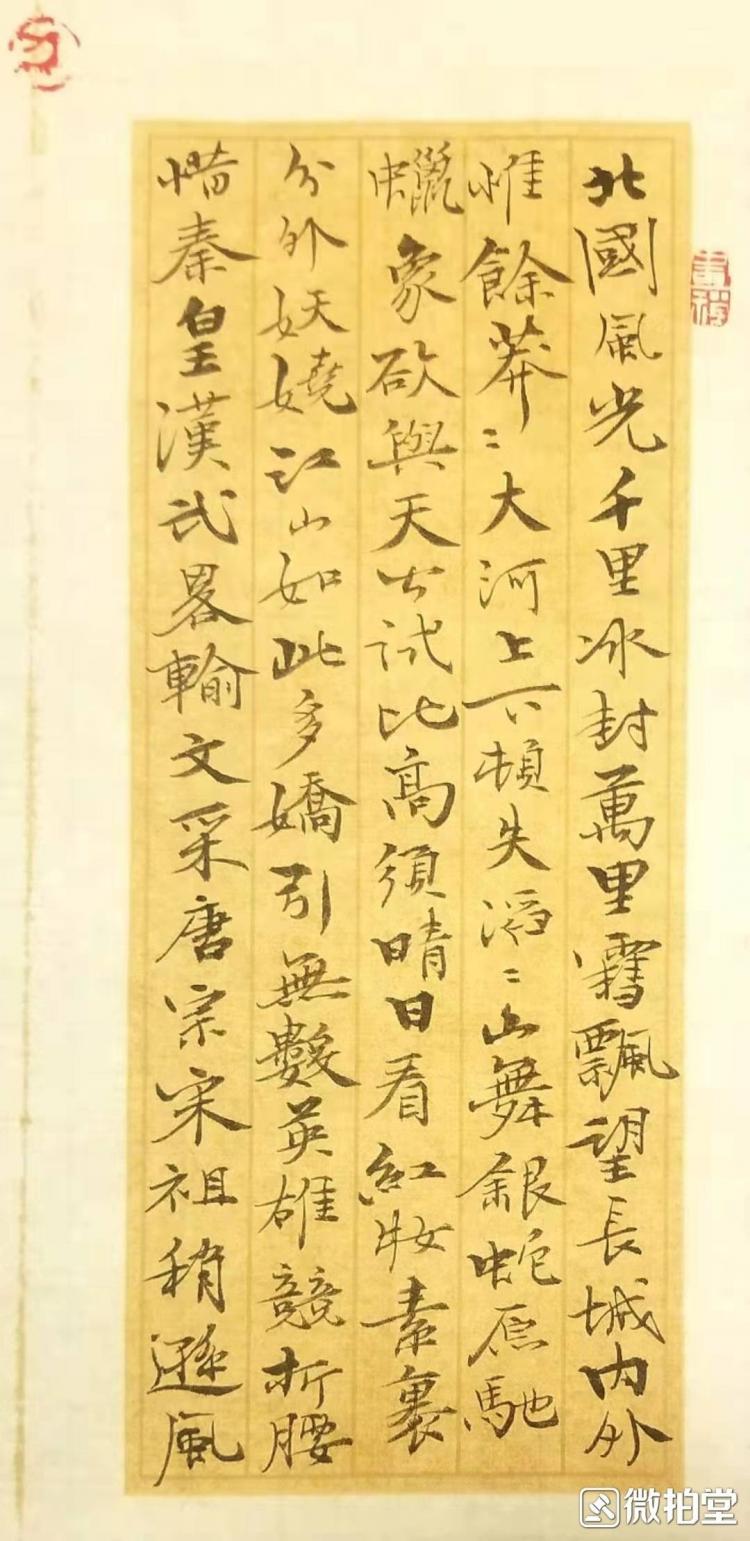 北國風光千里冰封萬里雪飄望長城内外
惟餘莽〻大河上下頓失滔〻山舞銀蛇原馳
蠟象欲與天公試比高須晴日看紅妝素裹
分外妖嬈江山如此多嬌引無數英雄競折腰
惜秦皇漢武略輸文采唐宗宋祖稍遜風
微拍堂